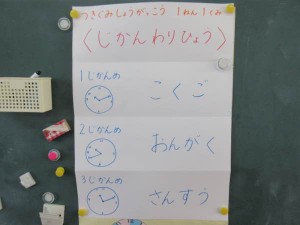 つきぐみしょうがっこう 1ねん1くみ
〈じかんわりひょう〉
1じかんめ
こくご
2じかんめ
おんがく
3じかんめ
さんすう